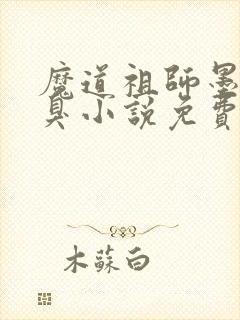 魔道祖師墨
臭小說免費
木蘇白